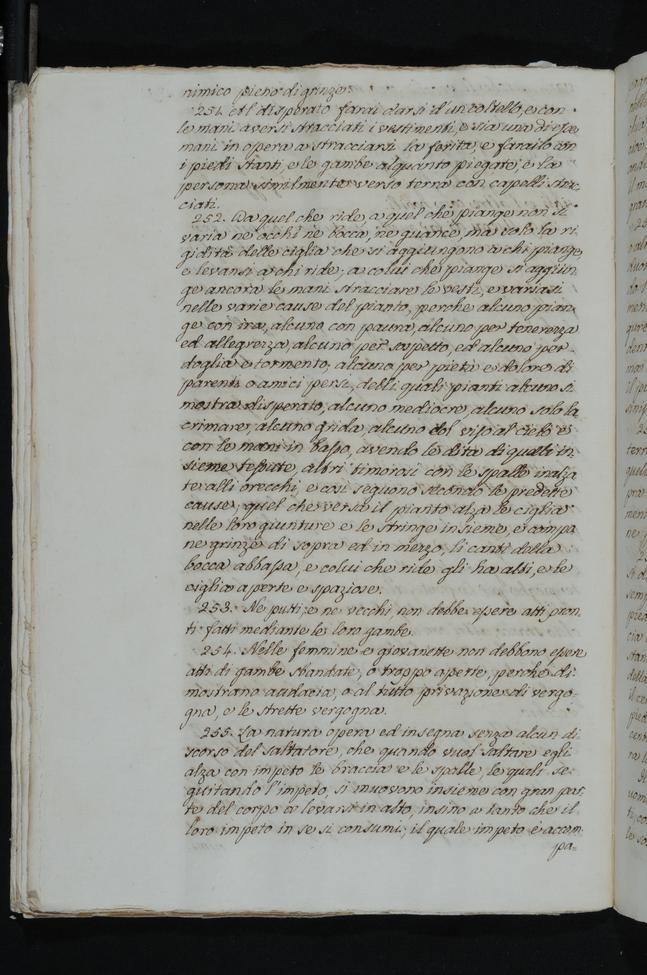 nimico pieno di grinze
251. Al disperato farai darsi d'un coltello, e con
le mani aversi stracciati i vestimenti, e sia una di esse
mani in opera a stracciarsi la ferita, e farailo con
i piedi stanti, e le gambe alquanto piegate, e la
persona similmente verso terra con capelli strac
ciati.
252. Da quel che ride, a quel che piange non si
varia ne occhi ne bocca, ne guance, ma solo la ri
gidità delle ciglia che si aggiungono a chi piange,
e levansi a chi ride; a colui che piange si aggiun
ge ancora le mani stracciare le vesti, e variasi
nelle varie cause del pianto, perche alcuno pian
ge con ira, alcuno con paura, alcuno per tenerezza
ed allegrezza, alcuno per sospetto, ed alcuno per
doglia e tormento, alcuno per pietà e dolore di
parenti o amici persi, delli quali pianti alcuno si
mostra disperato, alcuno mediocre, alcuno solo la
crimare, alcuno grida, alcuno col viso al cielo e
con le mani in basso, avendo le dita di quelle in
sieme tessute, altri timorosi con le spalle inalza
te alli orecchi, e così seguono secondo le predette
cause; quel che versa il pianto alza le ciglia
nelle loro giunture e le stringe insieme, e compa
ne grinze di sopra ed in mezzo, li canti della
bocca abbassa, e colui che ride gli ha alti, e le
ciglia aperte e spaziose.
253. Ne putti e ne vecchi non debbe essere atti pron
ti fatti mediante le loro gambe
254. Nelle femmine e giovanette non debbono essere
atti di gambe sbandate, o troppo aperte, perche di
mostrano audacia, o al tutto privazione di vergo-
gna, e le strette vergogna.
255. La natura opera ed insegna senza alcun di
scorso del saltatore, che quando vuol saltare egli
alza con impeto le braccia e le spalle, le quali se-
guitando l'impeto, si muovono insieme con gran par
te del corpo a levarsi in alto, insino a tanto che il
loro impeto in se si consumi; il quale impeto è accom
pa=